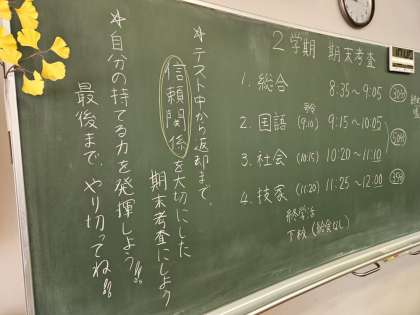 2学期 期末考査
1. 総合 8:35～9:05 30分
2. 国語 (9:10) 9:15～10:05
3. 社会 (10:15) 10:20～11:10 50分
4. 技家 (11:20) 11:25～12:00 35分
終学活
下校(給食なし)
☆テスト中から返却まで、
信頼関係を大切にした
期末考査にしよう
☆自分の持てる力を発揮しよう!!
最後まで、やり切ってね!!